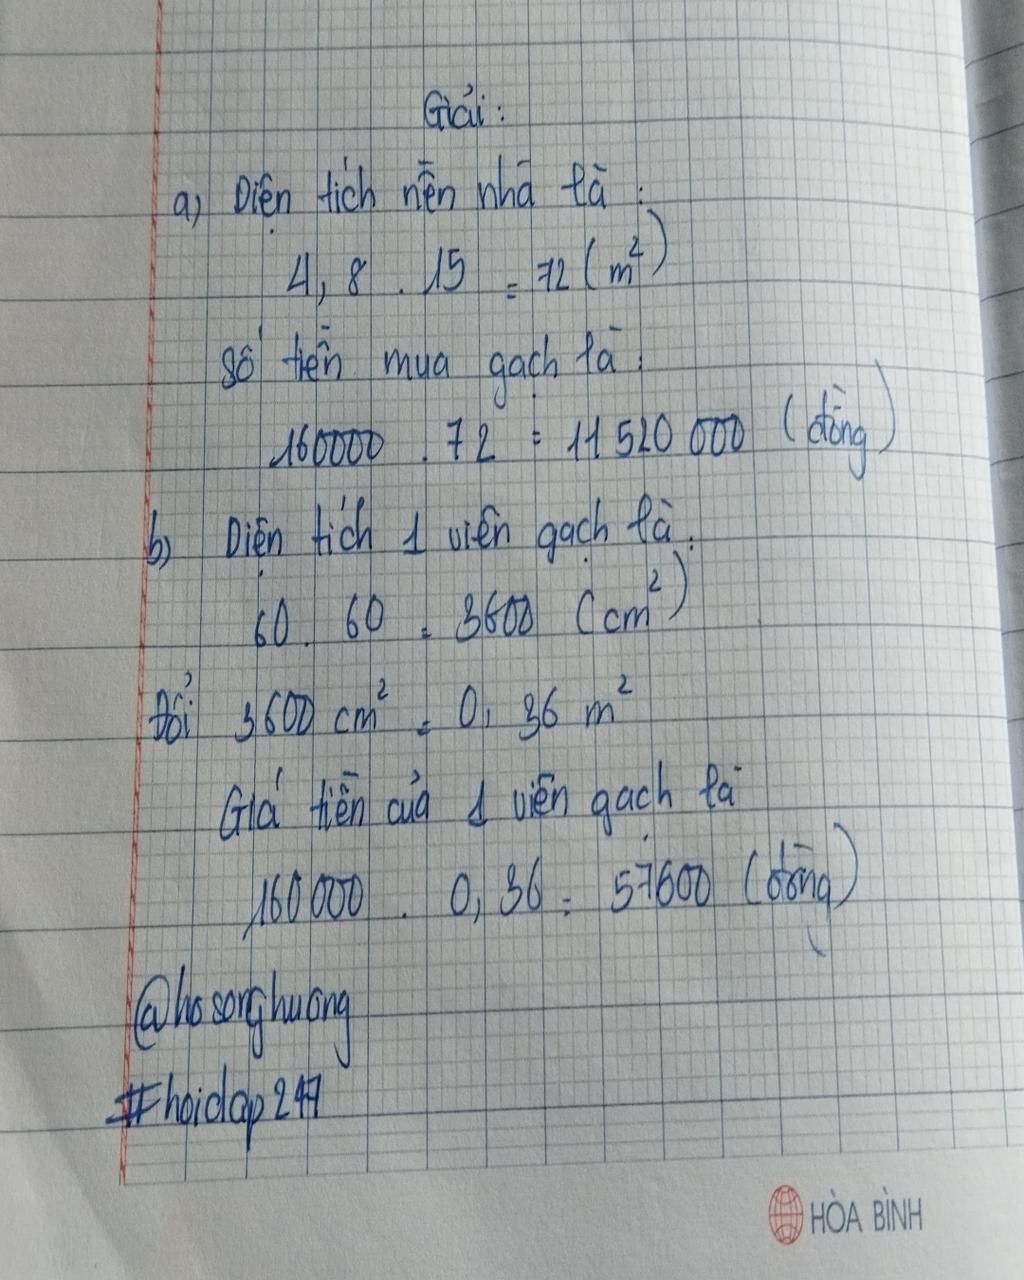 Giải:
a) Diện tích nền nhà là:
4,8 . 15 = 72 (m²)
Số tiền mua gạch là:
160000 . 72 = 11 520 000 (đồng)
b) Diện tích 1 viên gạch là:
60 . 60 = 3600 (cm²)
Đổi 3600 cm² = 0,36 m²
Giá tiền của 1 viên gạch là
160 000 . 0,36 = 57600 (đồng)
@hosonghuong
#hoidap247
HÒA BÌNH